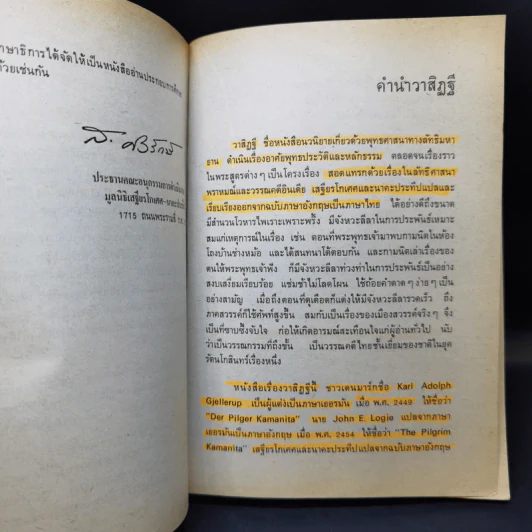 ษาธิการได้จัดให้เป็นหนังสืออ่านประกอบการศึกษา
ด้วยเช่นกัน
ส. ศิวรักษ์
ประธานคณะอนุกรรมการ
มูลนิธิเสฐียรโกเศศ-นาคะประทีป
1715 ถนนพระรามที่
คำนำวาสิฏฐี
วาสิฏฐี ชื่อหนังสือนวนิยายเกี่ยวด้วยพุทธศาสนาทางลัทธิมหา
ยาน ดำเนินเรื่องอาศัยพุทธประวัติและหลักธรรม ตลอดจนเรื่องราว
ในพระสูตรต่างๆ เป็นโครงเรื่อง สอดแทรกด้วยเรื่องในลัทธิศาสนา
พราหมณ์และวรรณคดีอินเดีย เสฐียรโกเศศและนาคะประทีปแปลและ
เรียบเรียงออกจากฉบับภาษาอังกฤษเป็นภาษาไทย ได้อย่างดีถึงขนาด
มีสำนวนโวหารไพเราะเพราะพริ้ง มีจังหวะลีลาในการประพันธ์เหมาะ
สมแก่เหตุการณ์ในเรื่อง เช่น ตอนที่พระพุทธเจ้ามาพบกามนิตในห้อง
โถงบ้านช่างหม้อ และได้สนทนาโต้ตอบกัน และกามนิตเล่าเรื่องของ
ตนให้พระพุทธเจ้าฟัง ก็มีจังหวะลีลาท่วงทำในการประพันธ์เป็นอย่าง
สงบเสงี่ยมเรียบร้อย แช่มช้าไม่โลดโผน ใช้ถ้อยคำดาดๆ ง่ายๆ เป็น
อย่างสามัญ เมื่อถึงตอนที่ดุเดือดก็แต่งให้มีจังหวะลีลารวดเร็ว ถึง
ภาคสวรรค์ก็ใช้ศัพท์สูงขึ้น สมกับเป็นเรื่องของเมืองสวรรค์จริงๆ จึง
เป็นที่ซาบซึ้งจับใจ ก่อให้เกิดอารมณ์สะเทือนใจแก่ผู้อ่านทั่วไป นับ
ว่าเป็นวรรณกรรมที่ถึงชั้น เป็นวรรณคดีไทยชั้นเยี่ยมของชาติในยุค
รัตนโกสินทร์เรื่องหนึ่ง
หนังสือเรื่องวาสิฏฐีนี้ ชาวเดนมาร์กชื่อ Karl Adolph
Gjellerup เป็นผู้แต่งเป็นภาษาเยอรมัน เมื่อ พ.ศ. 2449 ให้ชื่อว่า
"Der Pilger Kamanita" นาย John E. Logie แปลจากภาษา
เยอรมันเป็นภาษาอังกฤษ เมื่อ พ.ศ. 2454 ให้ชื่อว่า "The Pilgrim
Kamanita" เสฐียรโกเศศและนาคะประทีปแปลจากฉบับภาษาอังกฤษ